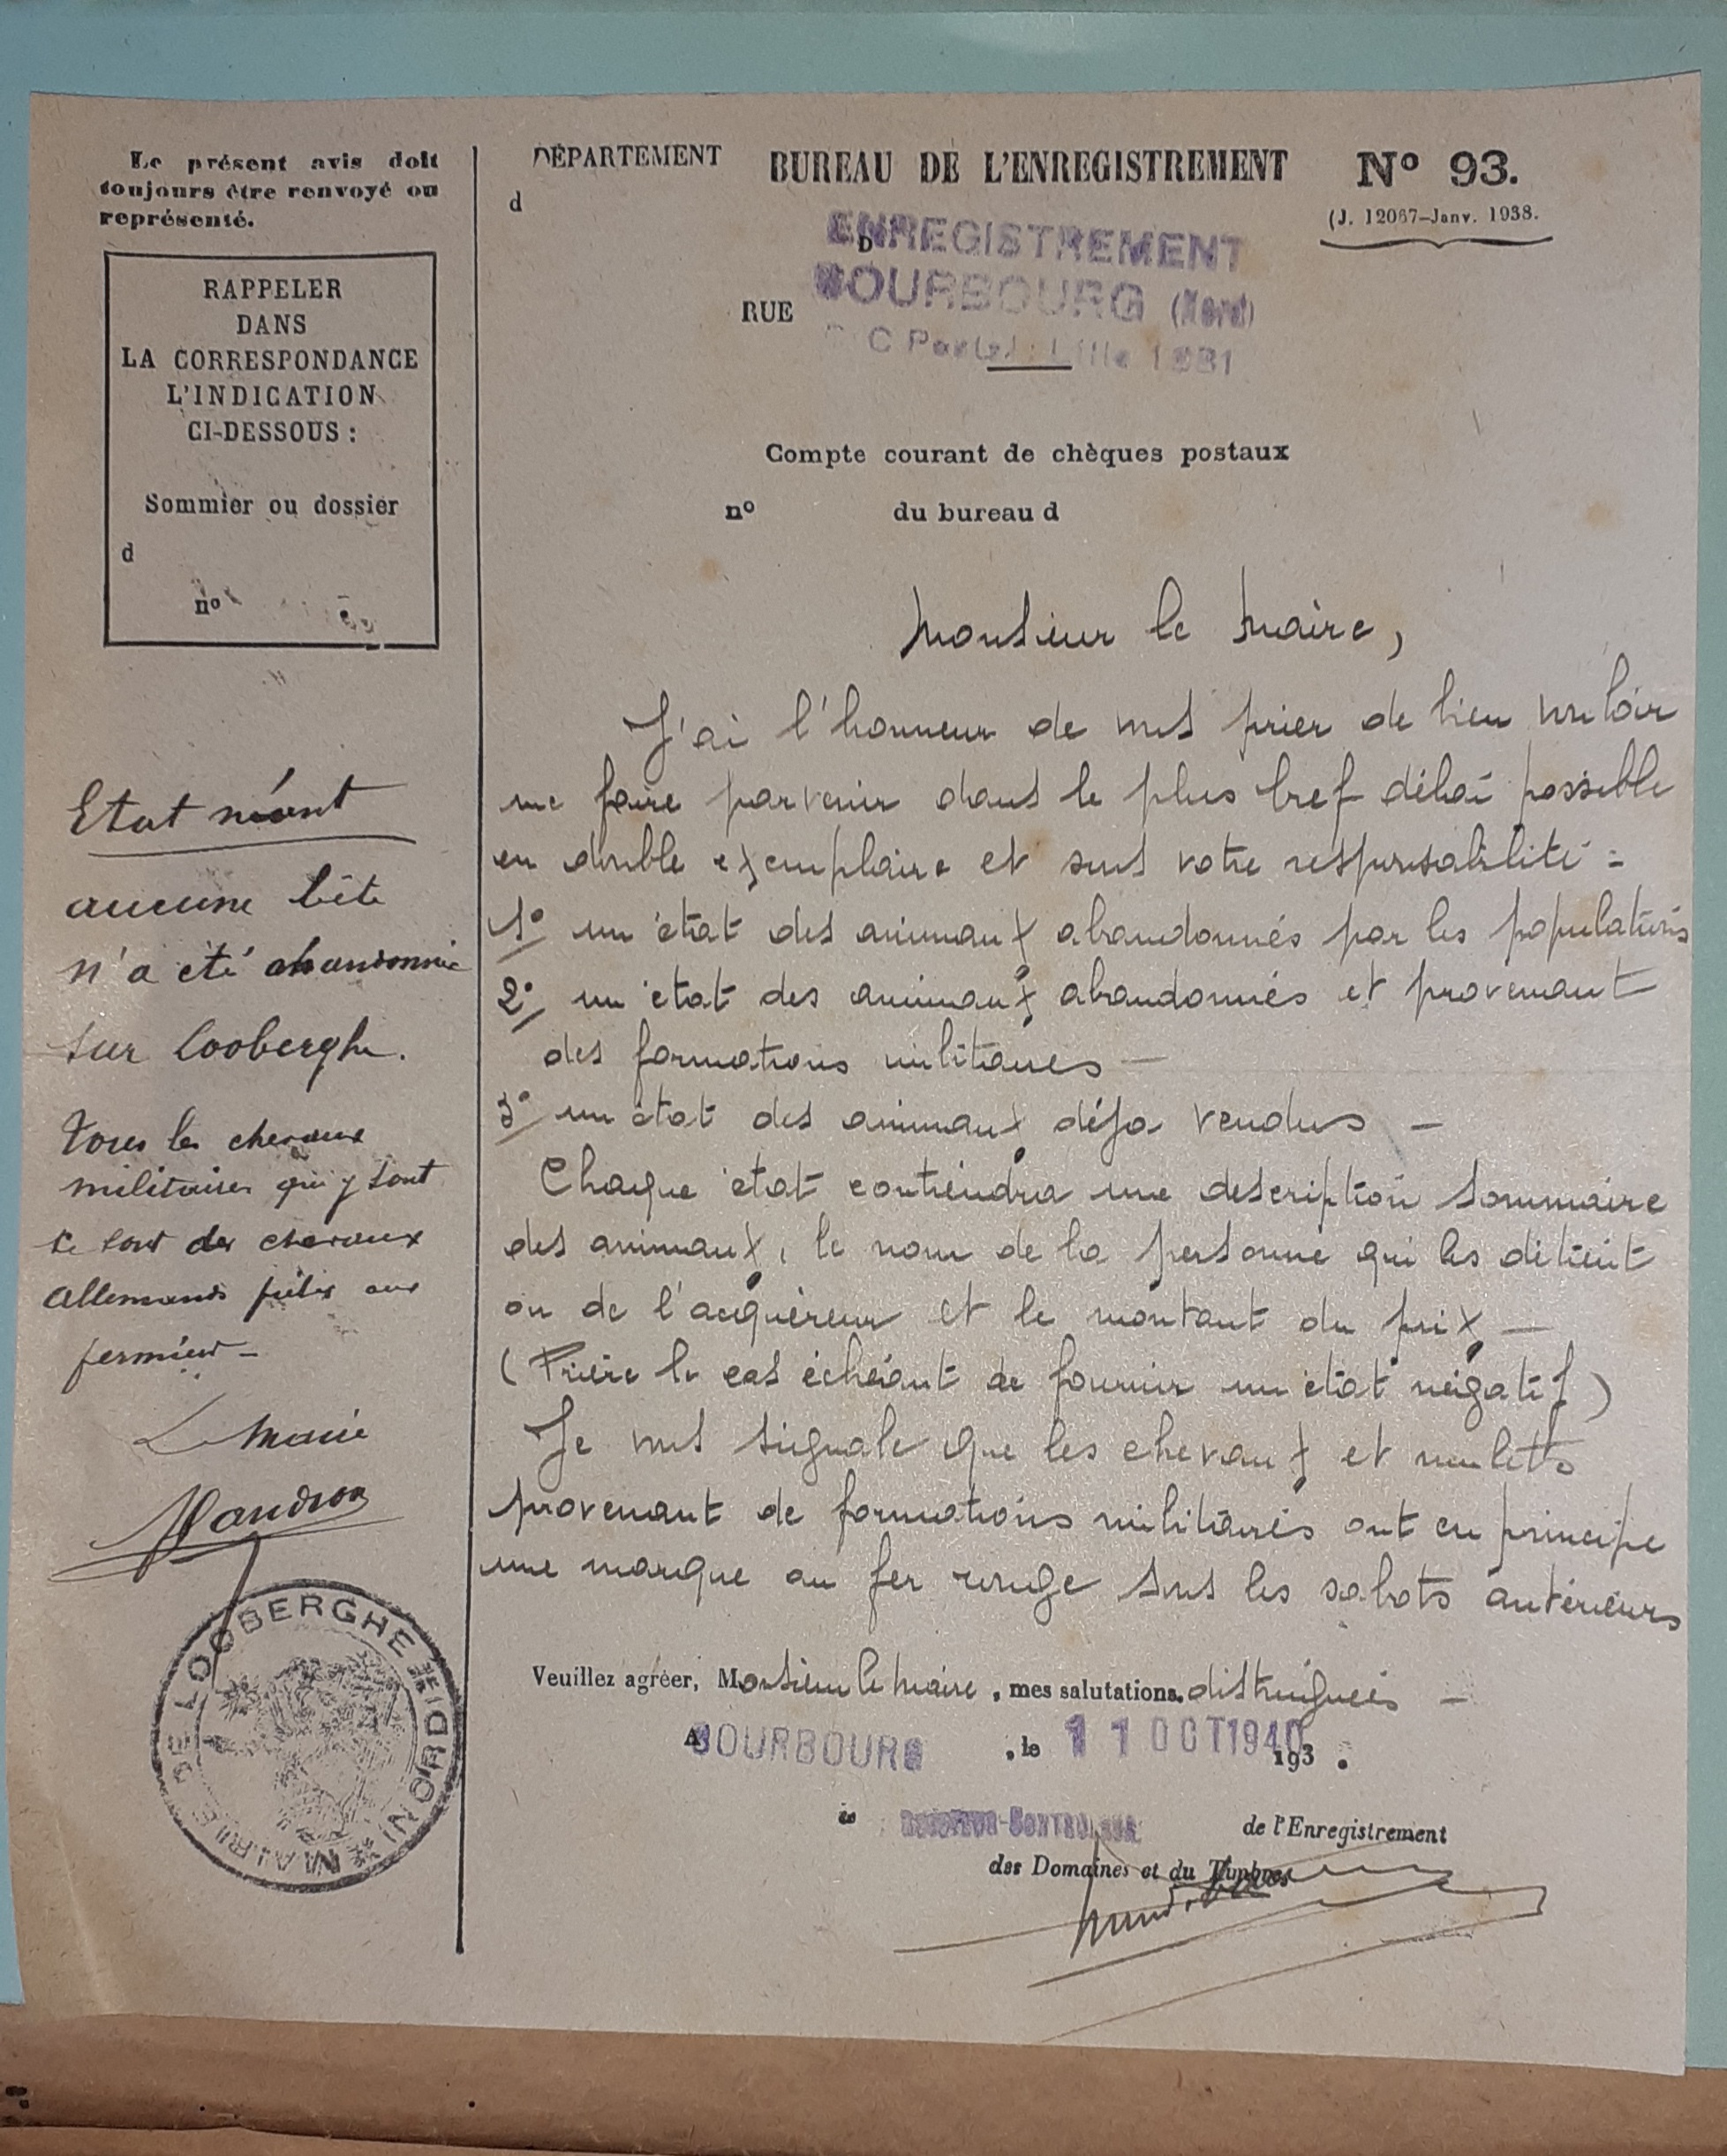 Le présent avis doit
toujours être renvoyé ou
représenté.
RAPPELER
DANS
LA CORRESPONDANCE
L'INDICATION
CI-DESSOUS :
Sommier ou dossier
d
nº
Etat néant
aucune bête
n'a été abandonnée
sur Looberghe.
Tous les chevaux
militaires qui y sont
ce sont des chevaux
Allemands prêtés aux
fermiers
Le Maire
MAIRIE DE LOOBERGHE (NORD)
DÉPARTEMENT
d
BUREAU DE L'ENREGISTREMENT
D
ENREGISTREMENT
BOURBOURG (Nord)
RUE
C Postal Lille
Nº 93.
(J. 12067-Janv. 1938.
Compte courant de chèques postaux
nº du bureau d
Monsieur le Maire,
J'ai l'honneur de vous prier de bien vouloir
me faire parvenir dans le plus bref délai possible
en double exemplaire et sous votre responsabilité :
1º un état des animaux abandonnés par les populations
2º un état des animaux abandonnés et provenant
des formations militaires —
3º un état des animaux déjà vendus —
Chaque état contiendra une description sommaire
des animaux, le nom de la personne qui les détient
ou de l'acquéreur et le montant du prix —
(Prière le cas échéant de fournir un état négatif)
Je vous signale que les chevaux et mulets
provenant de formations militaires ont en principe
une marque au fer rouge sous les sabots antérieurs
Veuillez agréer, Monsieur le Maire, mes salutations distinguées —
A BOURBOURG, le 11 OCT 1940 193 .
le RECEVEUR-CONTROLEUR de l'Enregistrement
des Domaines et du Timbre